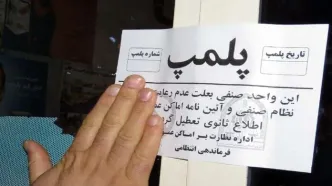 تاریخ پلمپ
شماره پلمپ
پلمپ
این واحد صنفی بعلت عدم
نظام صنفی و آئین نامه اماکن
اطلاع ثانوی تعطیل
اداره نظارت بر اماکن
فرماندهی انتظامی